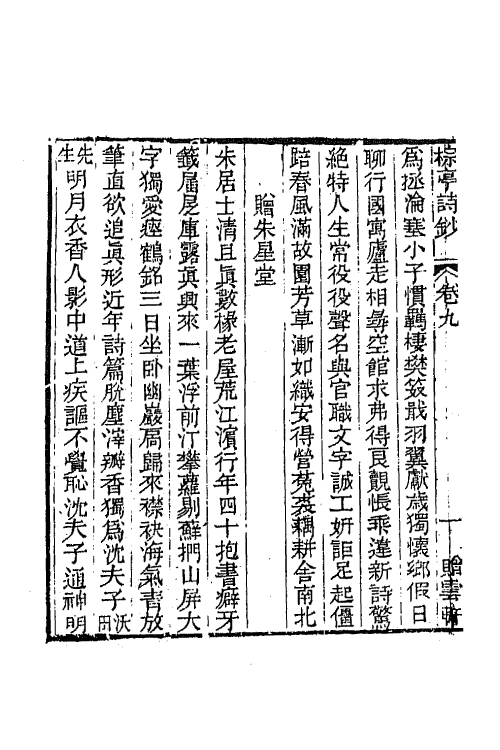 棕亭詩鈔 卷九 一 贈雲軒
爲拯淪塞小子慣羈棲樊笯戢羽翼獻歲獨懷鄉假日
聊行國寓廬走相尋空館求弗得良覿悵乖違新詩驚
絶特人生常役役聲名與官職文字誠工妍詎足起僵
踣春風滿故園芳草漸如織安得營菟裘耦耕舍南北
贈朱星堂
朱居士清且眞數椽老屋荒江濱行年四十抱書癖牙
籤屠尾庫露眞興來一葉浮前汀攀蘿剔蘚捫山屏大
字獨愛瘞鶴銘三日坐臥幽巖扃歸來襟袂海氣青放
筆直欲追眞形近年詩篇脫塵滓瓣香獨爲沈夫子沃田
先生明月衣香人影中道上疾謳不覺恥沈夫子通神明